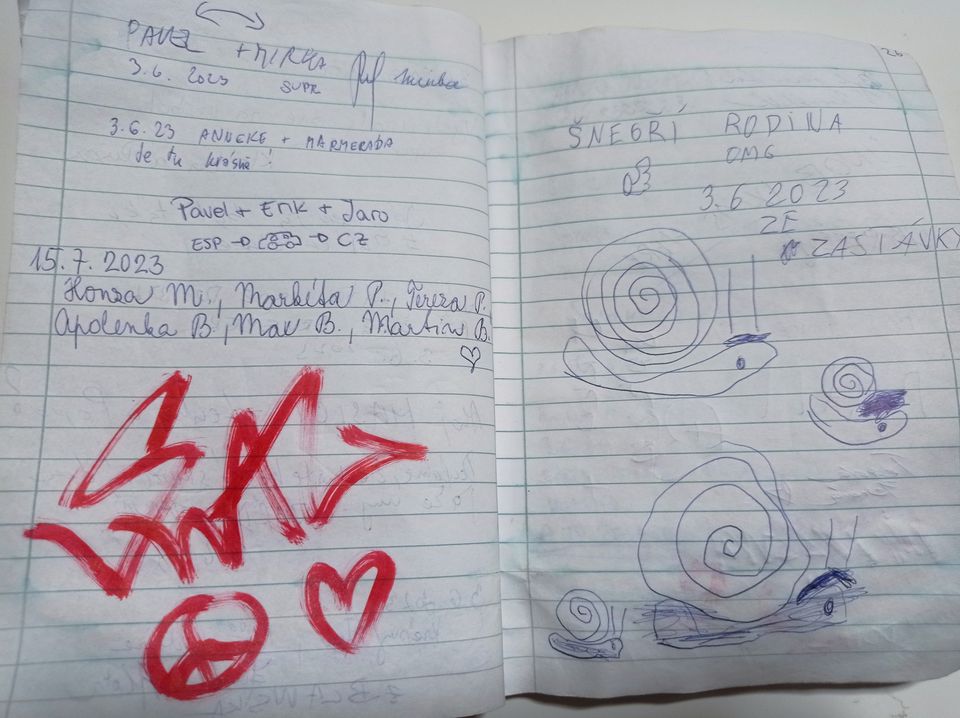 PAVEL + MIRKA
3.6. 2023 SUPR
3.6.23 ANNEKE + MARMERADA
Je tu krásně!
Pavel + Erik + Jaro
ESP → → CZ
15.7.2023
Honza M., Markéta P., Tereza P.
Apolenka B., Max B., Martin B.
26
ŠNEČŘÍ RODINA
OMG
3.6 2023
ZE
ZASTÁVKY